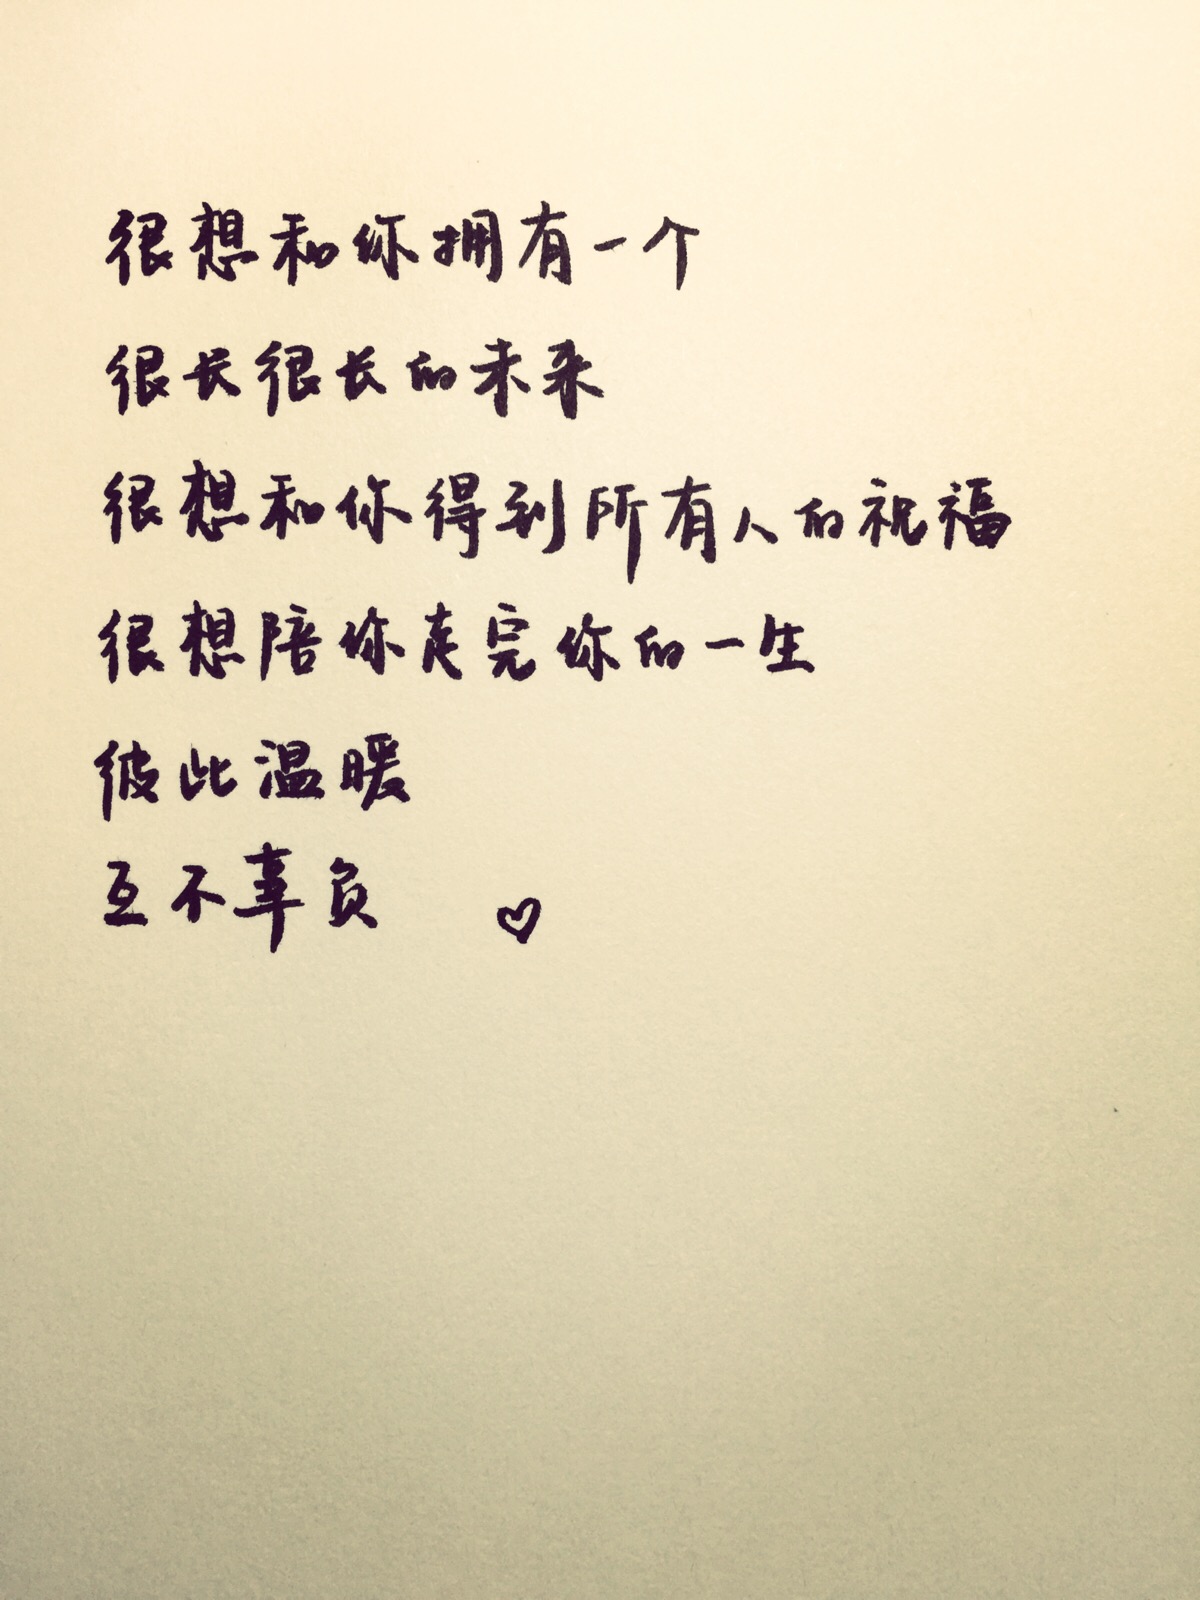 很想和你拥有一个
很长很长的未来
很想和你得到所有人的祝福
很想陪你走完你的一生
彼此温暖
互不辜负 ♡